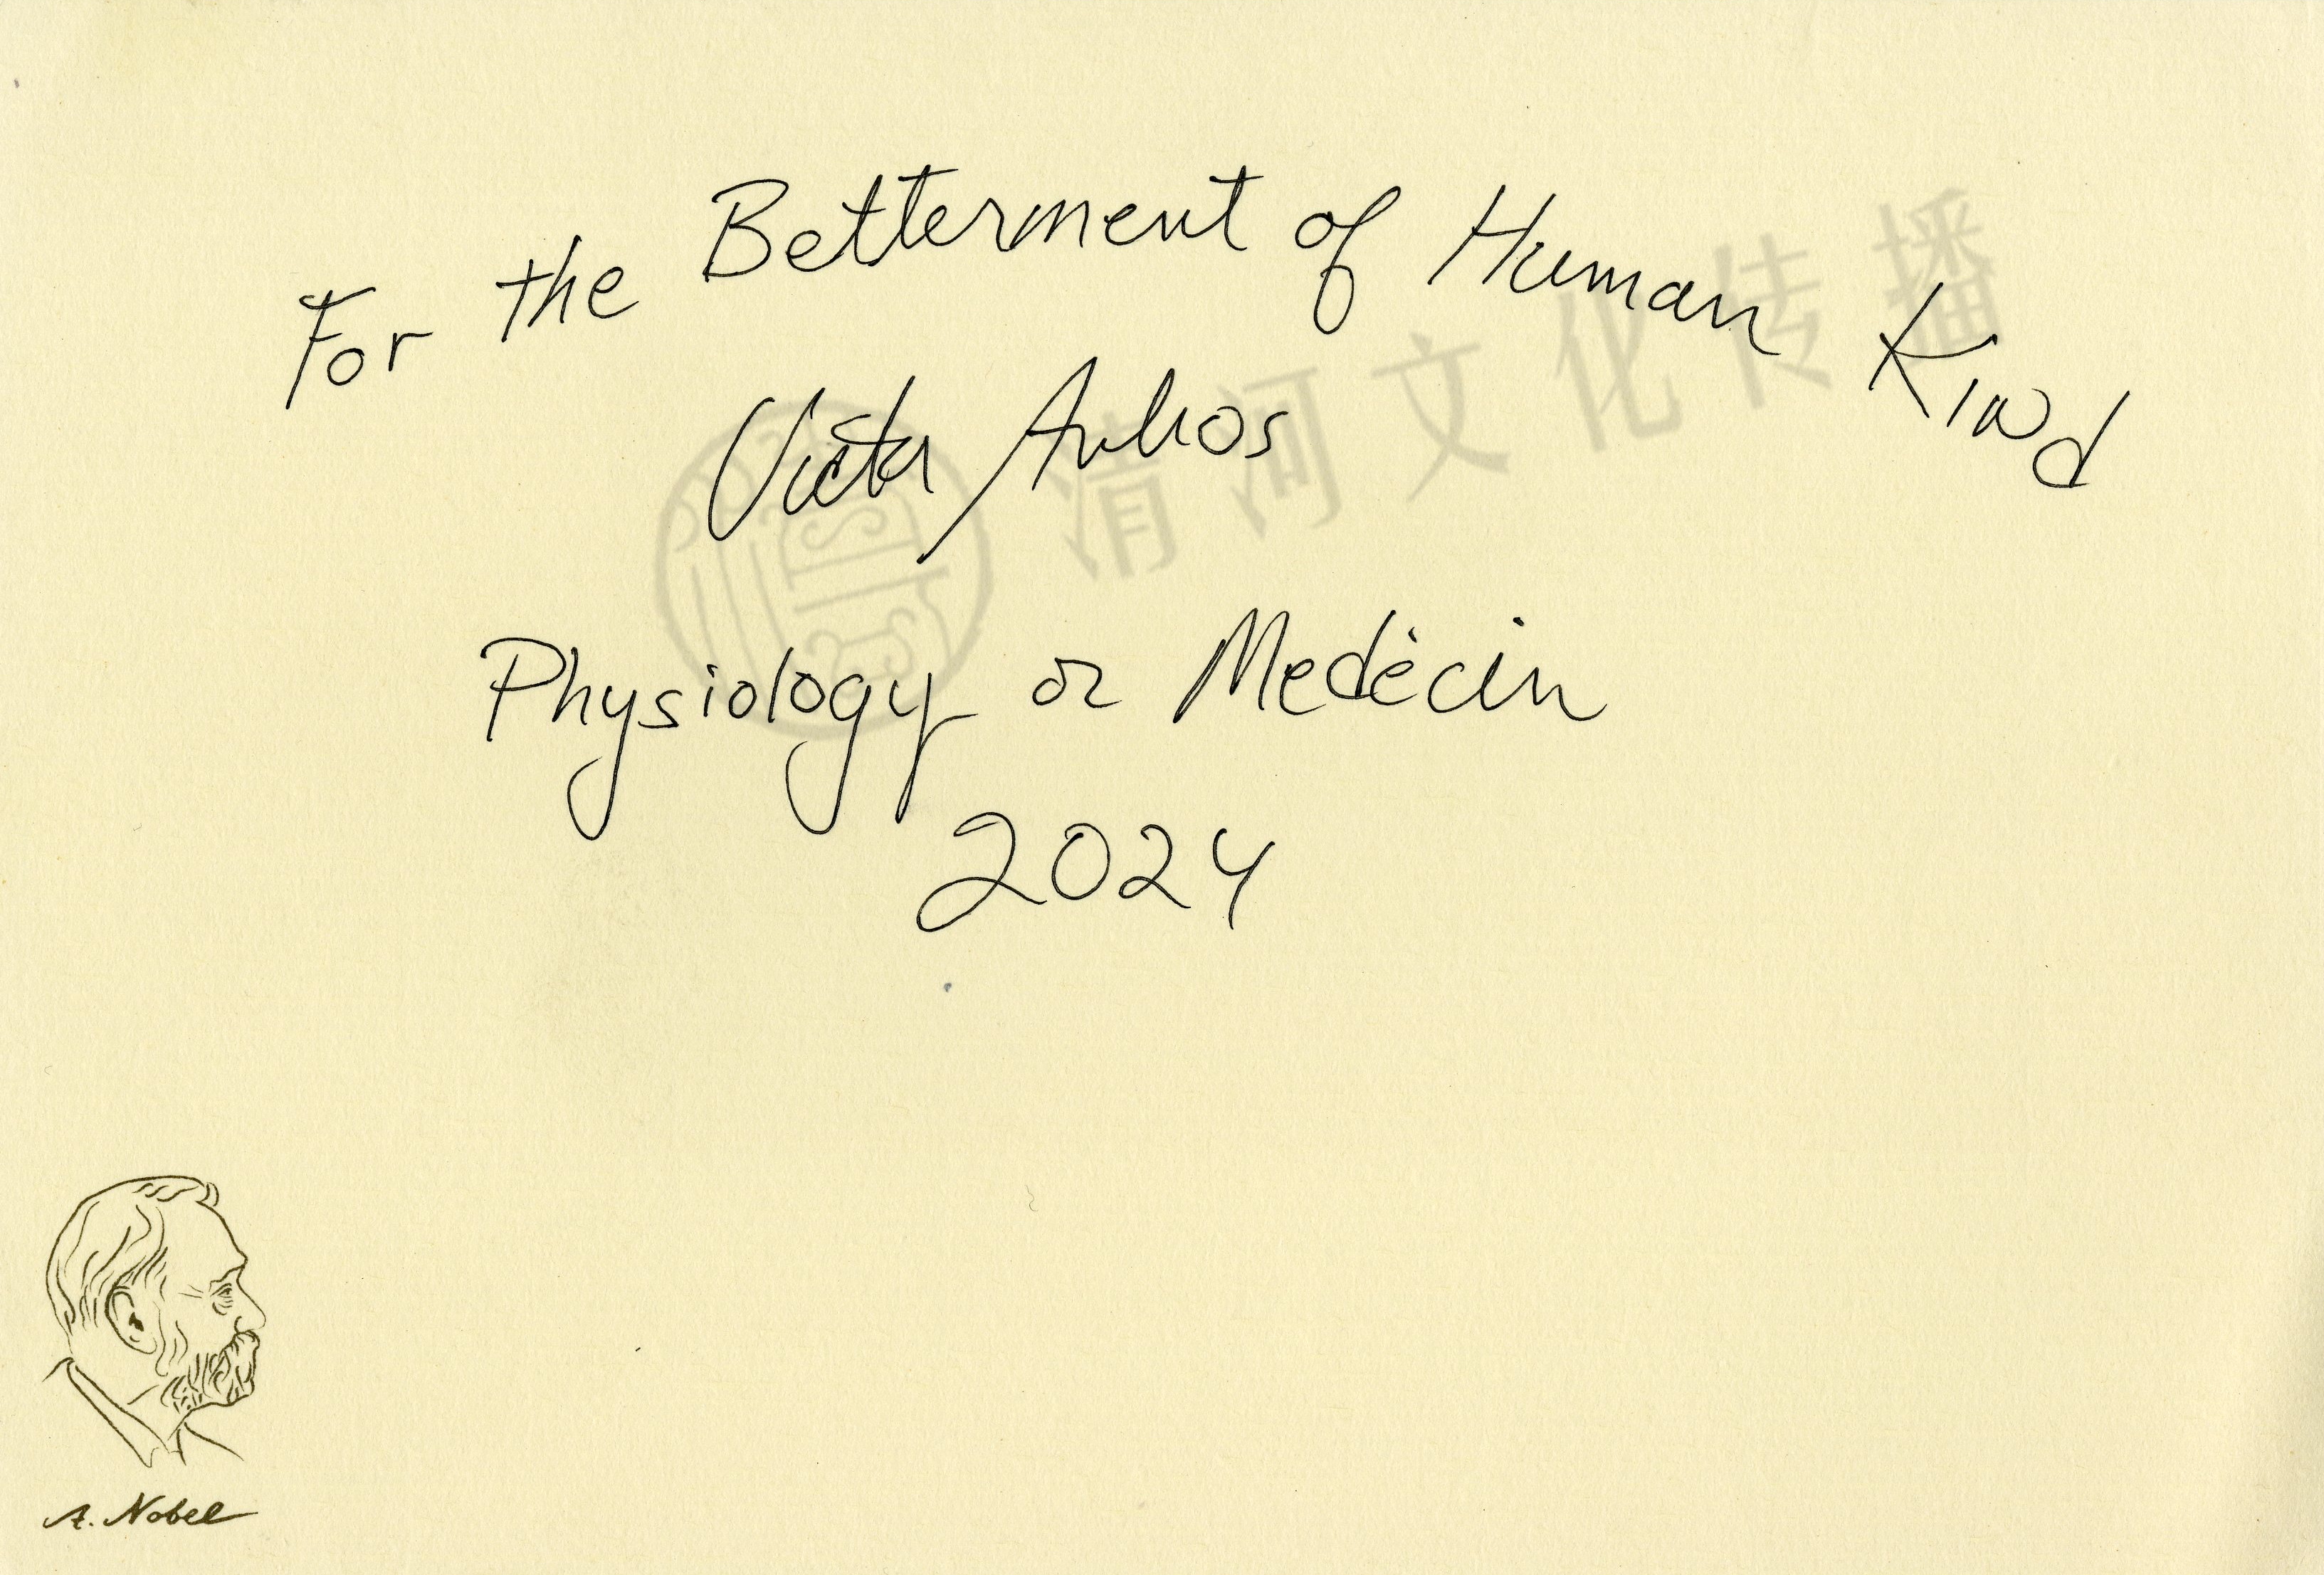 For the Betterment of Human Kind
Victor Ambros
Physiology or Medicin
2024
清河文化传播
A. Nobel